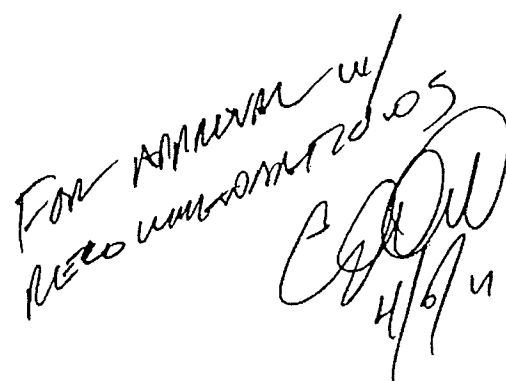 FOR APPROVAL w/
RECOMMENDATIONS
4/6/11